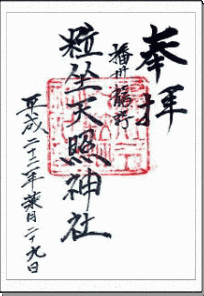 奉拝
播州龍野
粒坐天照神社
平成二十二年葉月二十九日